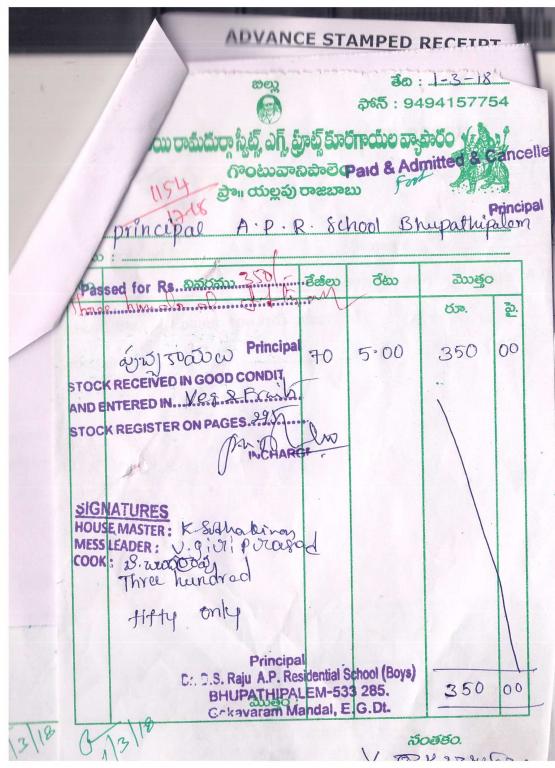 ADVANCE STAMPED RECEIPT
బిల్లు
తేది : 1-3-18
ఫోన్ : 9494157754
యి రామదుర్గా స్వీట్స్, ఎగ్స్, ఫ్రూట్స్ కూరగాయల వ్యాపారం
గొంటువానిపాలెం
Paid & Admitted & Cancelle
ప్రొ॥ యల్లపు రాజబాబు
for
1154
17-18
Principal
principal A.P.R. School Bhupathipalem
Passed for Rs. 350/-
వివరము కేజీలు రేటు మొత్తం
రూ. పై.
పుచ్చకాయలు 70 5.00 350 00
Principal
STOCK RECEIVED IN GOOD CONDIT
AND ENTERED IN Veg & Fruits
STOCK REGISTER ON PAGES
INCHARGE
SIGNATURES
HOUSE MASTER :
MESS LEADER : V. giri prasad
COOK :
Three hundred
fifty only
Principal
Dr. B.S. Raju A.P. Residential School (Boys)
BHUPATHIPALEM-533 285.
Gokavaram Mandal, E.G.Dt.
మొత్తం 350 00
/3/18
1/3/18
సంతకం.